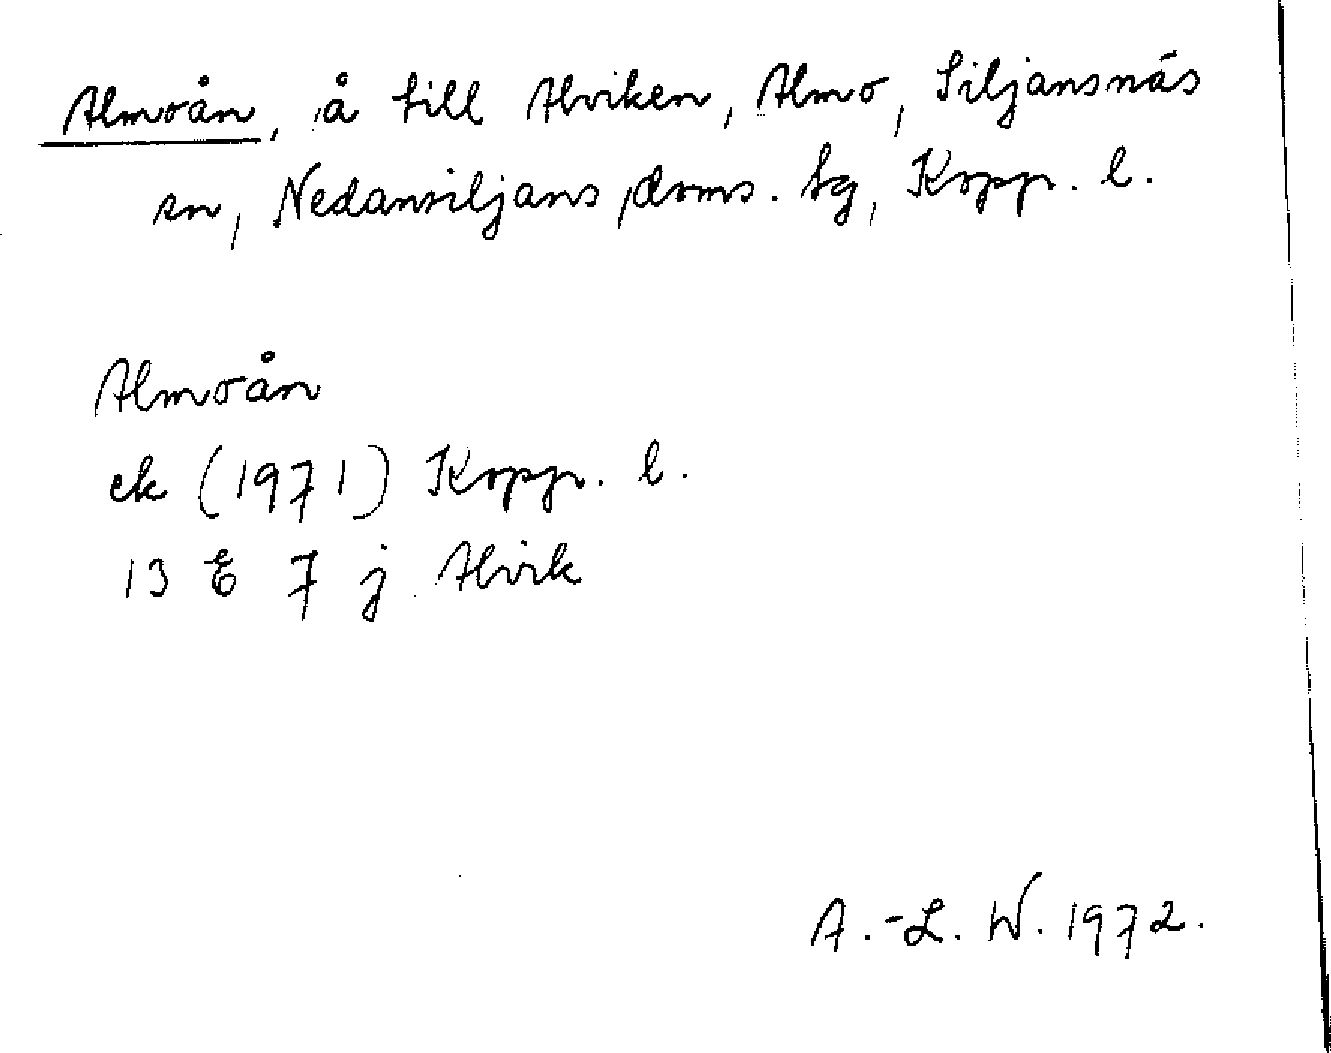 Almoån, å till Alviken, Almo, Siljansnäs
sn, Nedansiljans doms. tg, Kopp. l.
Almoån
ek (1971) Kopp. l.
13 E 7 j Alvik
A.-L. W. 1972.